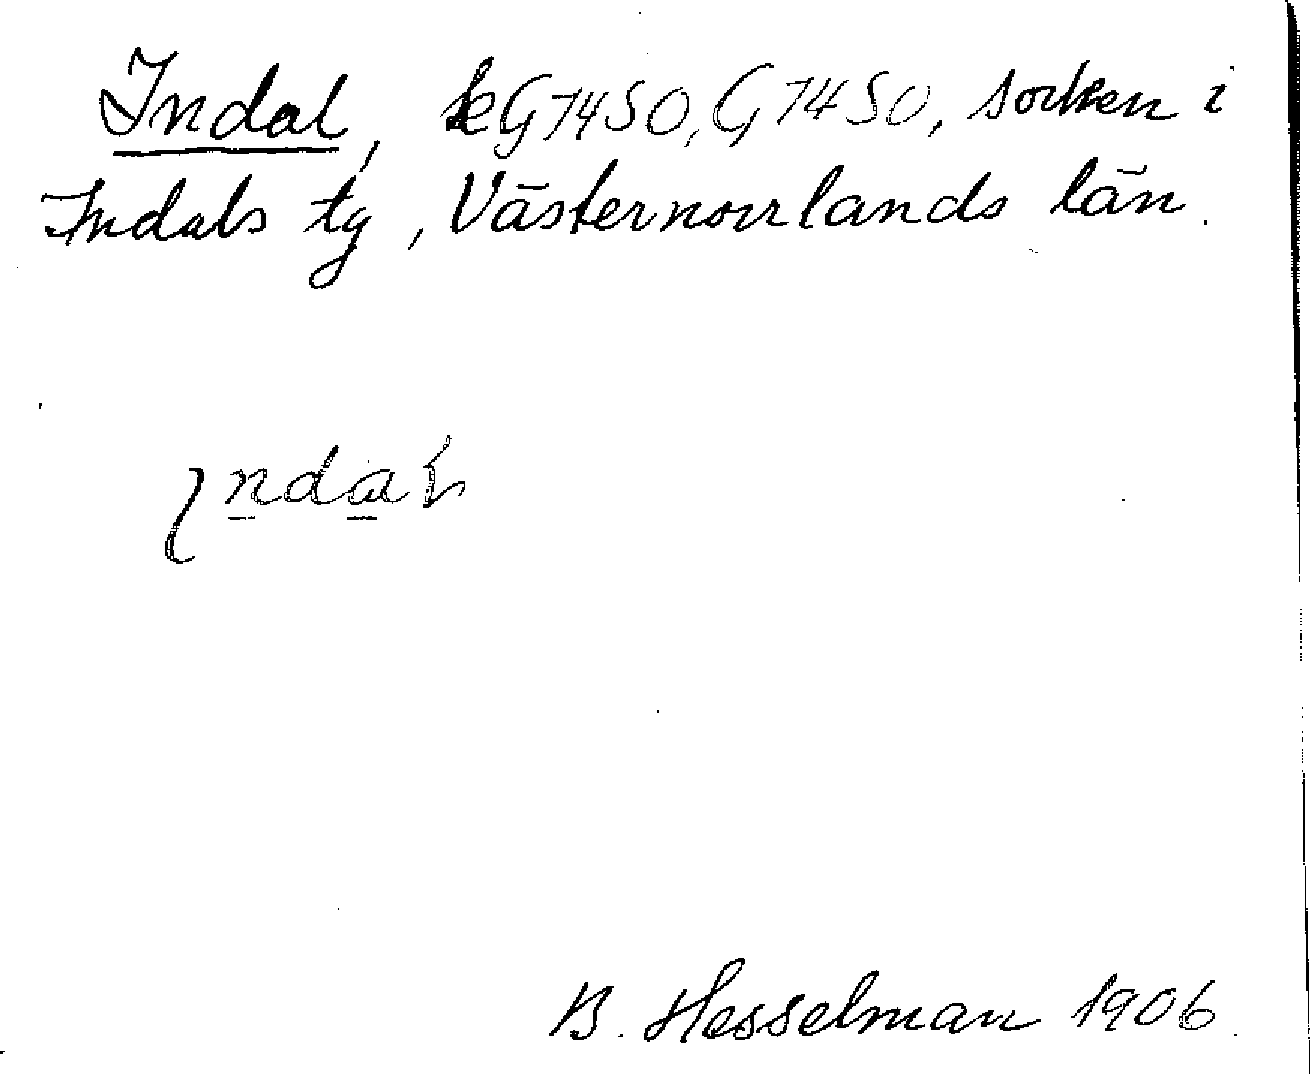 Indal, kG7450, G7450, socken i
Indals tg, Västernorrlands län.
ɩndaɫ
B. Hesselman 1906.